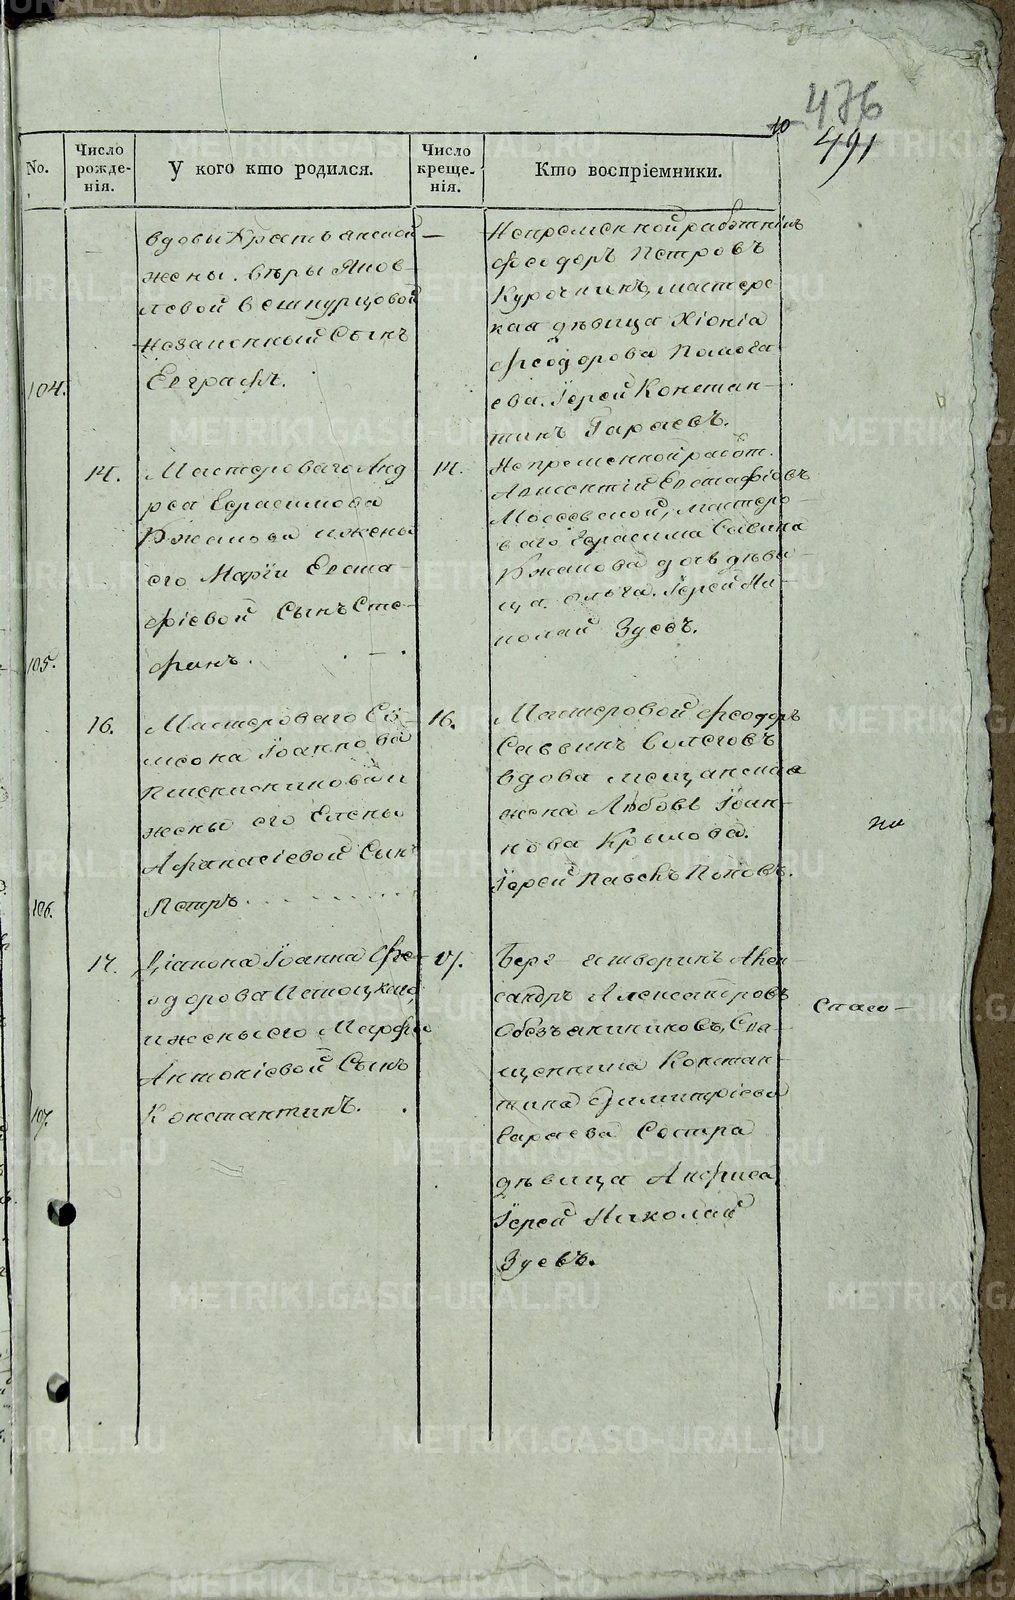 476
10
491
No.
Число рожде-нія.
У кого кто родился.
Число креще-нія.
Кто воспріемники.
вдовы Крестьянской
жены. Вѣры Яков-
левой
незаконный Сынъ
104.
Евграфъ.
—
Непременной работникъ
Феодоръ Петровъ
Курочкинъ, мастерс
кая дѣвица Хіонія
Феодорова
ева. Іерей Констан-
тинъ Гараевъ.
14.
Мастероваго Анд
рея Герасимова
и жены
его Маріи Евста-
фіевой Сынъ Сте-
105.
фанъ.
14.
Непременной работ.
Евстафіевъ
мастеро-
ваго Герасима Савина
дочь дѣви-
ца Ольга. Іерей Ни-
колай Зуевъ.
16.
Мастероваго Си-
меона Іоаннова
и
жены его Елены
Афанасіевой Сынъ
106.
Петръ
16.
Мастеровой Феодоръ
Саввинъ
вдова мещанская
жена Любовь Іоан-
нова Крылова.
Іерей Павелъ Поповъ.
17.
Діакона Іоанна Фе-
одорова
и жены его Марфы
Антоніевой Сынъ
107.
Константинъ.
17.
Берг-гешворинъ Алек-
сандръ Александровъ
Обезьяниновъ, Свя-
щенника Констан-
тина Димитріева
Гараева Сестра
дѣвица Анфиса
Іерей Николай
Зуевъ.
Спасо-
METRIKI.GASO-URAL.RU